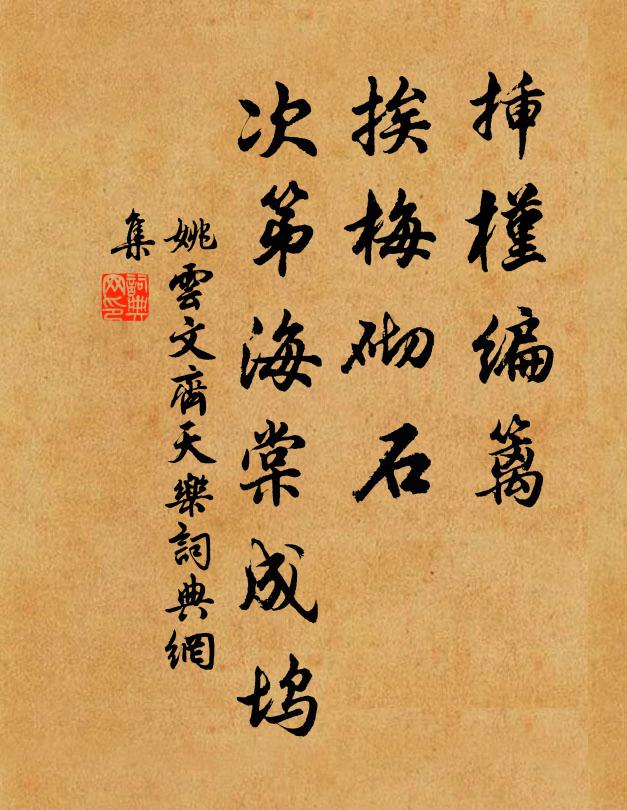 挿槿編籬
挨梅砌石
次第海棠成塢
姚雲文齊天樂詞典網
集
詞典
网印